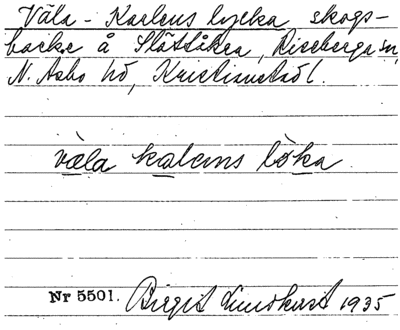 Väla-Karlens lycka, skogs-
backe å Slättåkra, Riseberga sn,
N. Åsbo hd, Kristianstad l.
väla kalens løka.
Nr 5501. Birgit Lundkvist 1935